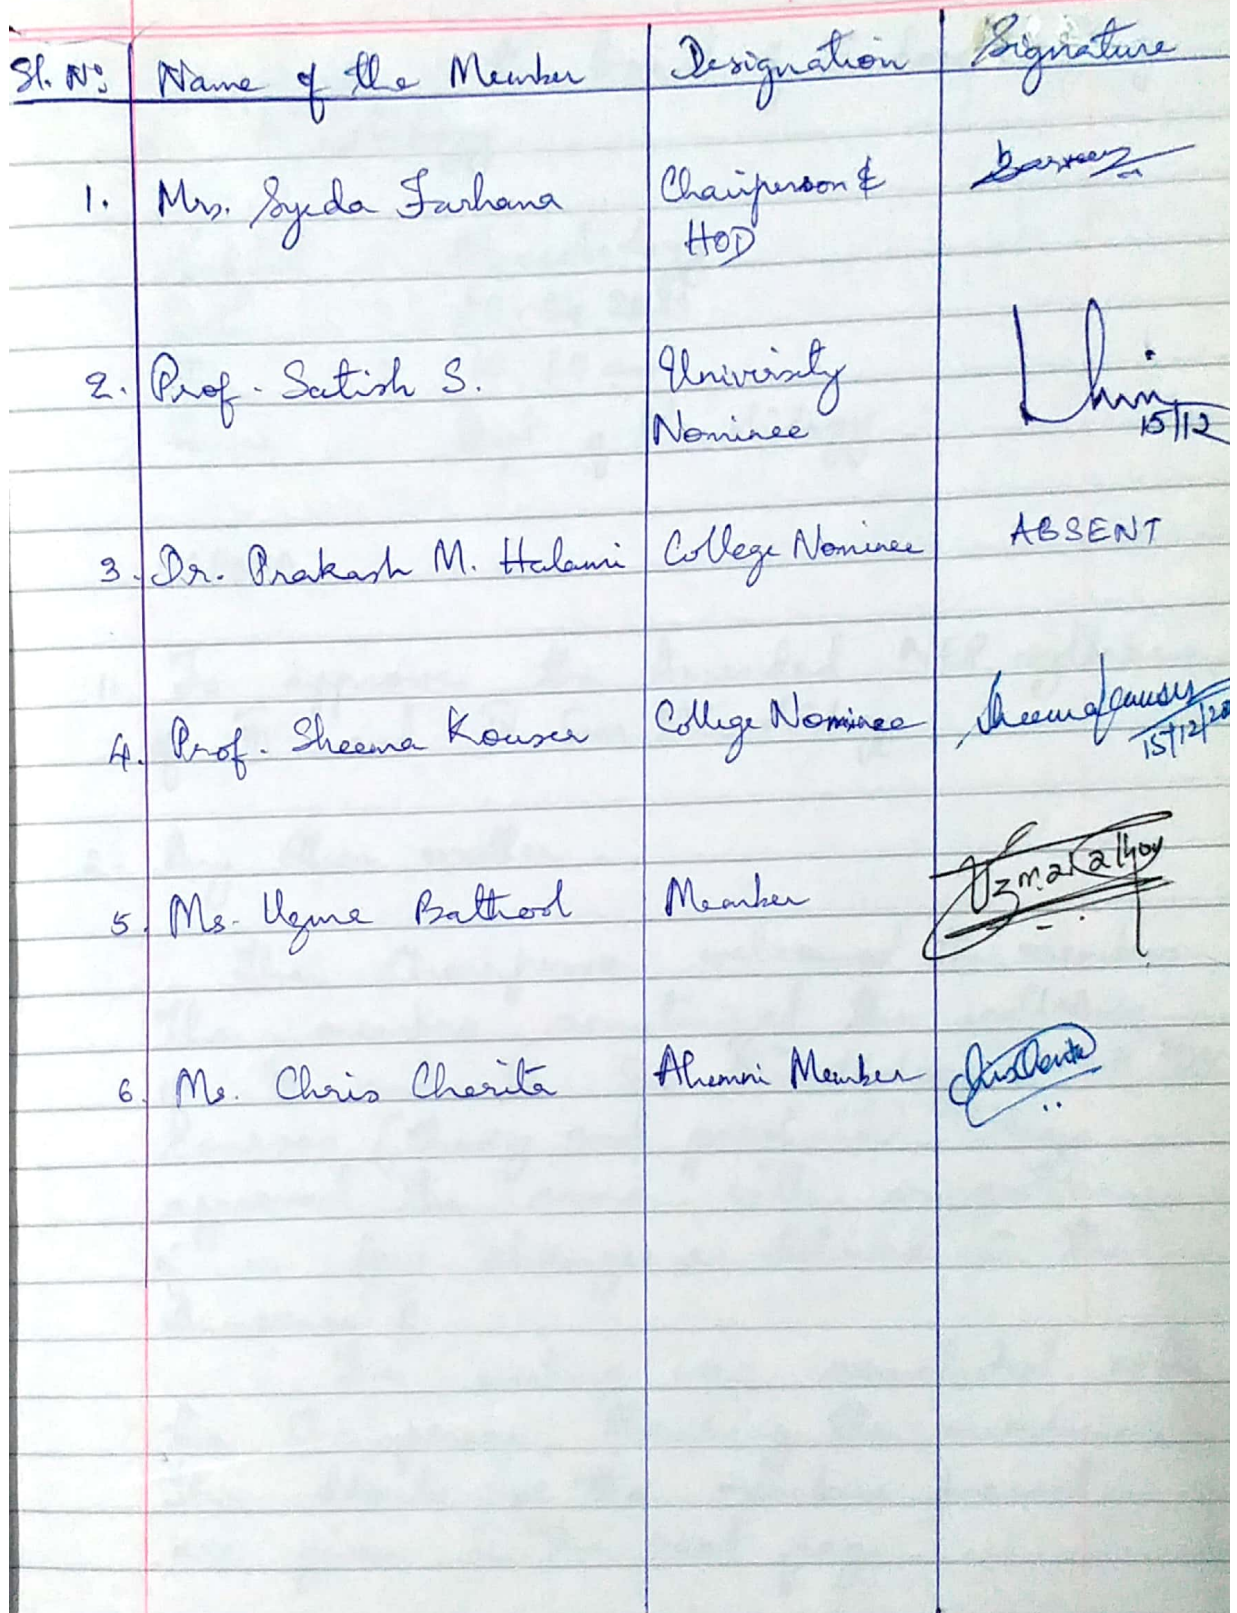 Sl. No Name of the Member Designation Signature
1. Mrs. Syeda Farhana Chairperson &
HOD
2. Prof. Satish S. University
Nominee 15/12
3. Dr. Prakash M. Halami College Nominee ABSENT
4. Prof. Sheema Kouser College Nominee Sheema Kouser
15/12/20
5. Ms. Uzma Bathool Member Uzma
6. Ms. Chris Cherita Alumni Member Chris Cherita